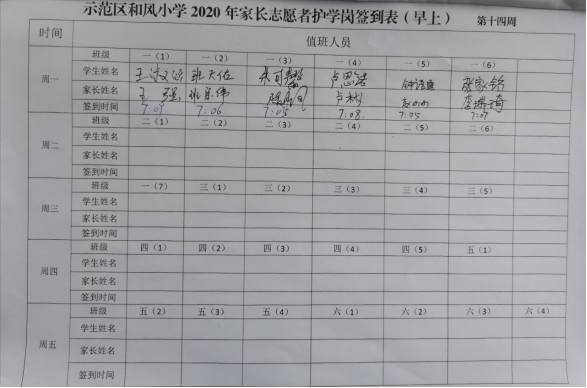 示范区和风小学 2020 年家长志愿者护学岗签到表（早上） 第十四周
时间 值班人员
周一
班级 一（1） 一（2） 一（3） 一（4） 一（5） 一（6）
学生姓名 班天佐 卢思皓 张家铭
家长姓名 王强 卢彬 李琳琦
签到时间 7:07 7:06 7:05 7:08 7:05 7:07
周二
班级 二（1） 二（2） 二（3） 二（4） 二（5） 二（6）
学生姓名
家长姓名
签到时间
周三
班级 一（7） 三（1） 三（2） 三（3） 三（4） 三（5）
学生姓名
家长姓名
签到时间
周四
班级 四（1） 四（2） 四（3） 四（4） 四（5） 五（1）
学生姓名
家长姓名
签到时间
周五
班级 五（2） 五（3） 五（4） 六（1） 六（2） 六（3） 六（4）
学生姓名
家长姓名
签到时间